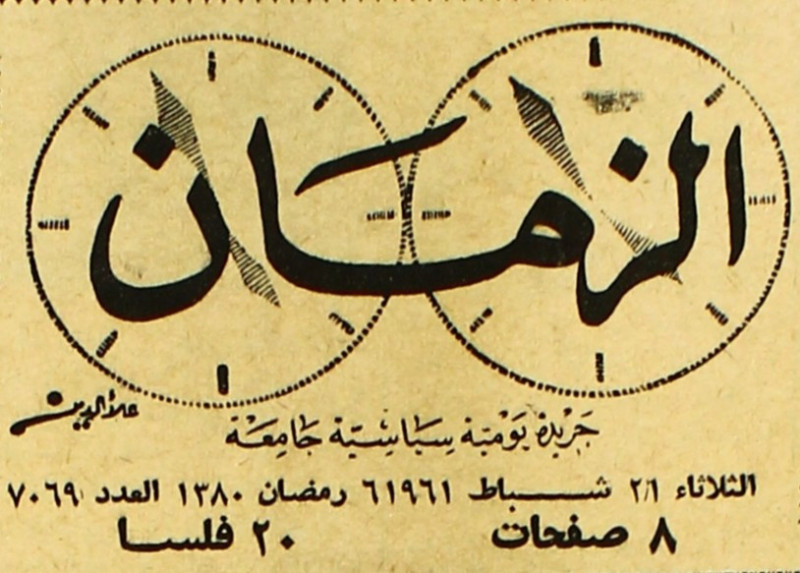 الزمان
علاء الدين
جريدة يومية سياسية جامعة
الثلاثاء ٢١ شباط ٦١٩٦١ رمضان ١٣٨٠ العدد ٧٠٦٩
٨ صفحات ٢٠ فلسا